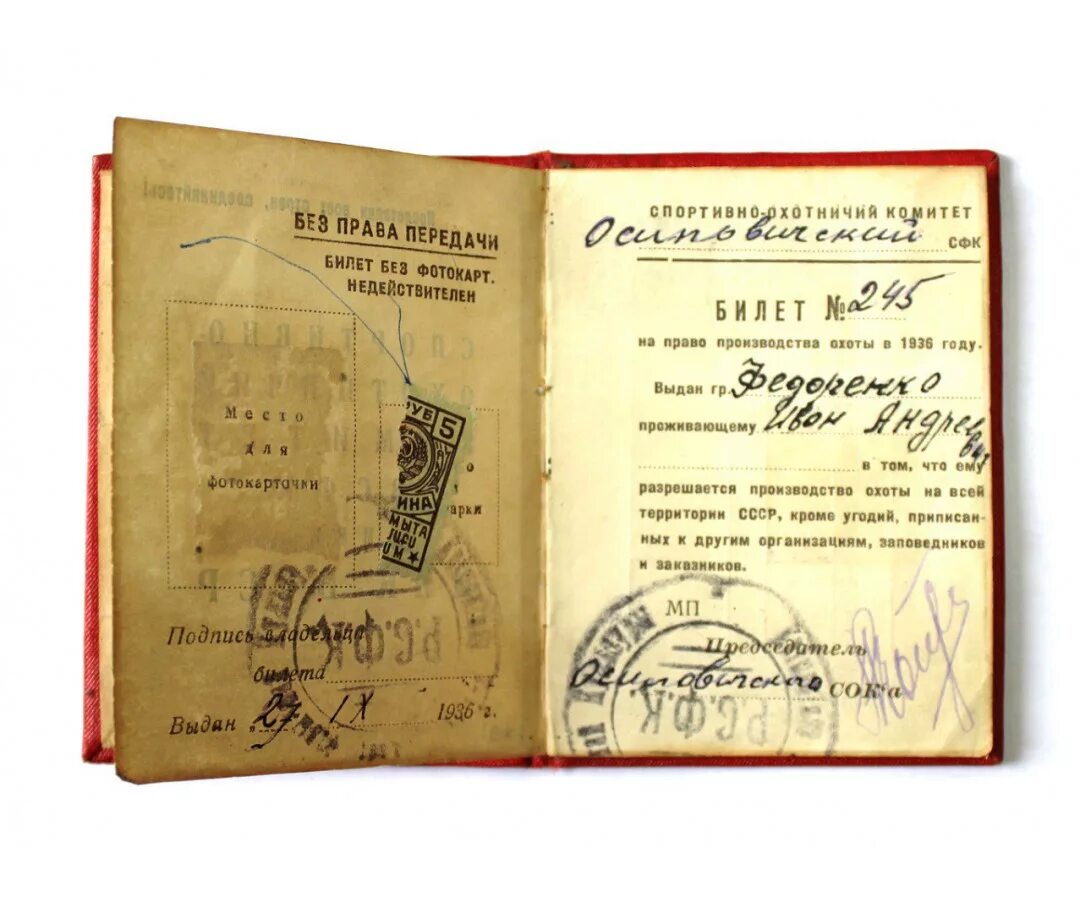 БЕЗ ПРАВА ПЕРЕДАЧИ
БИЛЕТ БЕЗ ФОТОКАРТ.
НЕДЕЙСТВИТЕЛЕН
Место
для
фотокарточки
РУБ 5
арки
Подпись владельца
билета
Выдан 27 IX 1936 г.
СПОРТИВНО-ОХОТНИЧИЙ КОМИТЕТ
Осиповичский СФК
БИЛЕТ № 245
на право производства охоты в 1936 году.
Выдан гр. Федоренко
проживающему Иван Андреевич
в том, что ему
разрешается производство охоты на всей
территории СССР, кроме угодий, приписан-
ных к другим организациям, заповедников
и заказников.
МП
Председатель
Осиповичского СОК'а